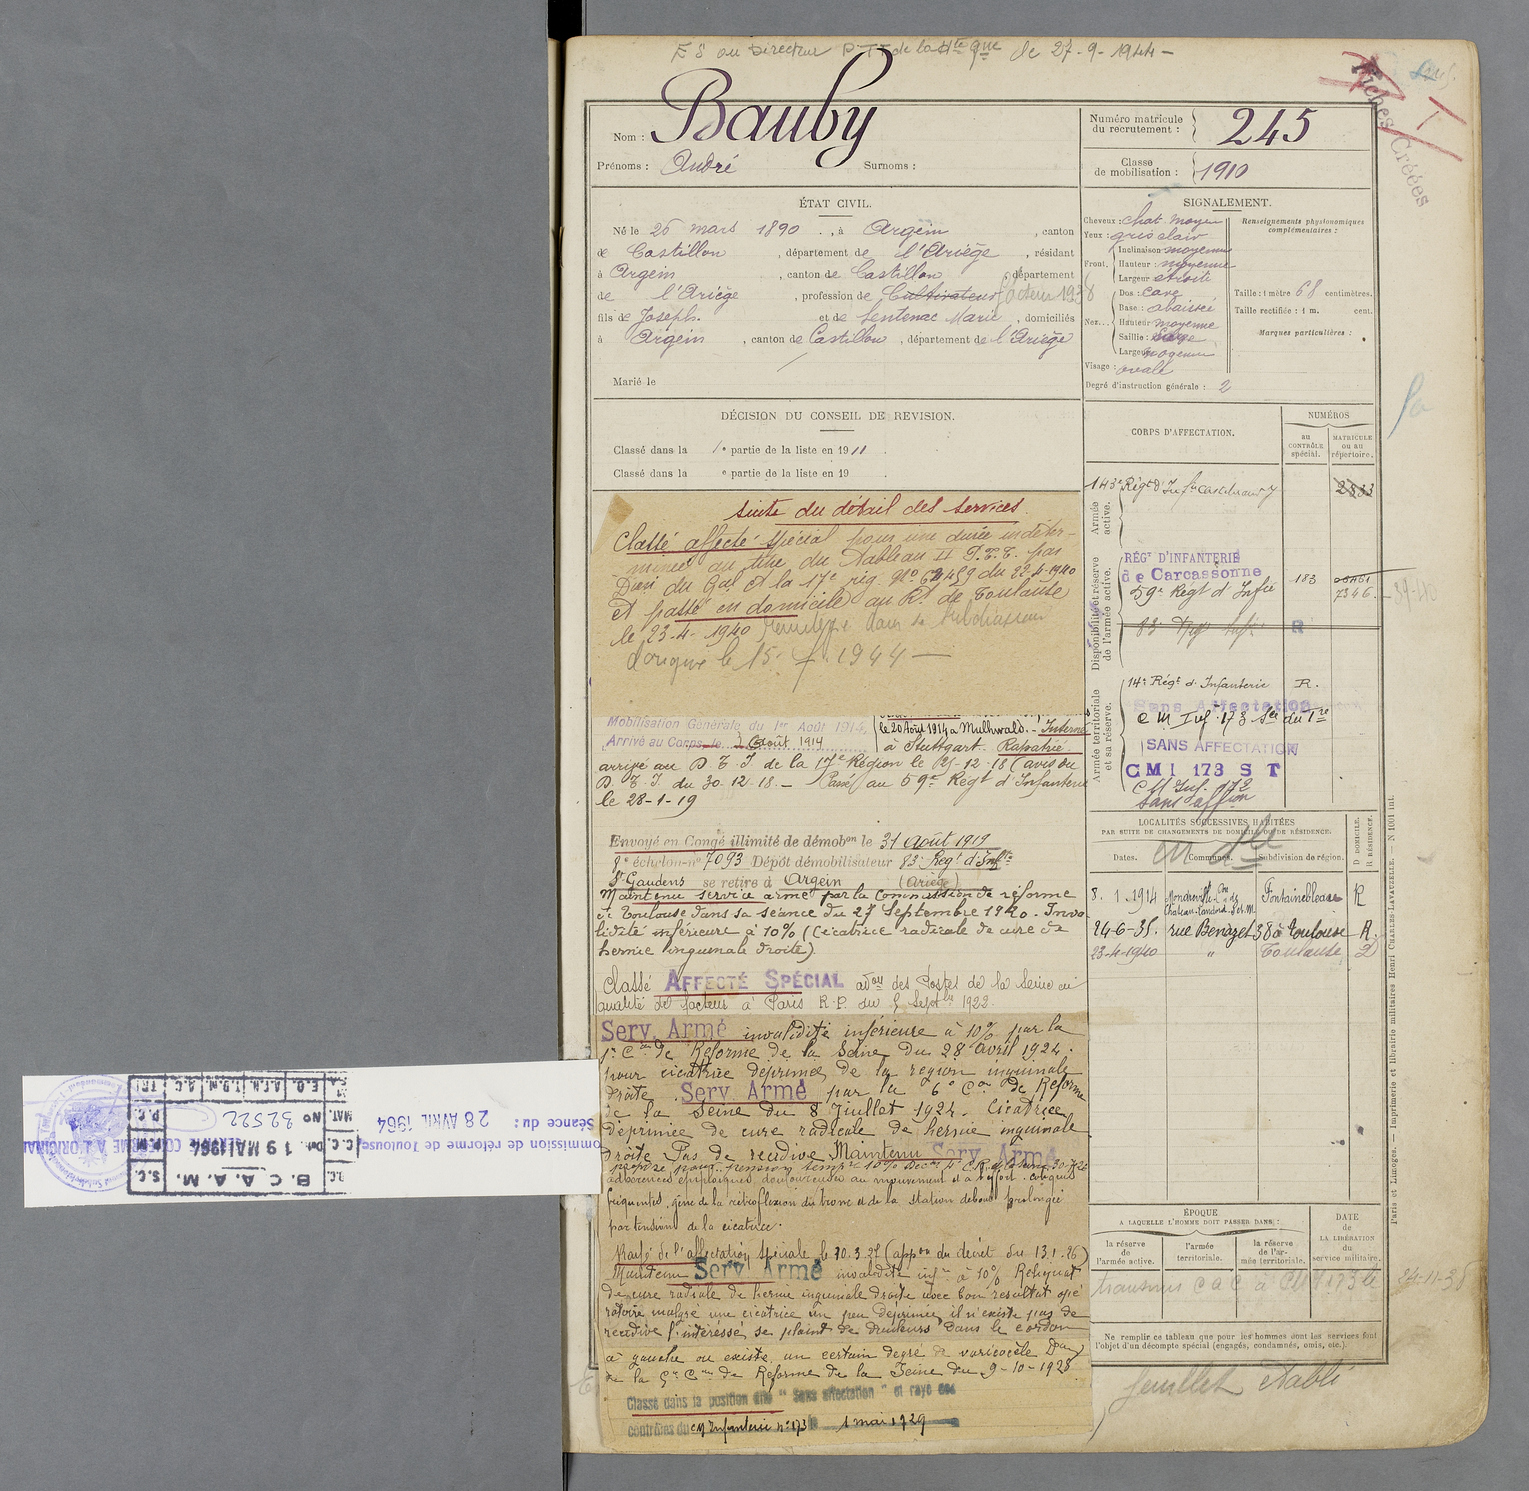 de 27-9-1944
Nom : Bauby
Prénoms : André Surnoms :
Numéro matricule du recrutement : 245
Classe de mobilisation : 1910
Fiches Créées
ÉTAT CIVIL.
Né le 26 mars 1890, à Argein, canton
de Castillon, département de l'Ariège, résidant
à Argein, canton de Castillon, département
de l'Ariège, profession de Cultivateur facteur 1938
fils de Joseph et de Sentenac Marie, domiciliés
à Argein, canton de Castillon, département de l'Ariège
Marié le
SIGNALEMENT.
Cheveux : chat. moyen
Yeux : gris clair
Front. Inclinaison moyenne
Hauteur : moyenne
Largeur étroite
Nez... Dos : cave
Base : abaissée
Hauteur moyenne
Saillie :
Largeur moyenne
Visage : ovale
Degré d'instruction générale : 2
Renseignements physionomiques complémentaires :
Taille : 1 mètre 68 centimètres.
Taille rectifiée : 1 m. cent.
Marques particulières :
DÉCISION DU CONSEIL DE REVISION.
Classé dans la 1e partie de la liste en 1911.
Classé dans la e partie de la liste en 19 .
suite du détail des services
Classé affecté spécial pour une durée indéter-
minée au titre du Tableau II P.T.T. par
du Gal Ct la 17e rég. du 22-4-1940
et passé en domicile au Rt de Toulouse
le 23-4-1940 dans sa subdivision
d'origine le 15. 1944
Mobilisation Générale du 1er Août 1914.
Arrivé au Corps le 3 Août 1914
le 20 Aout 1914 a Mulhwald. - Interné
à Stuttgart. Rapatrié
arrivé au D.T.I de la 17e Région le 12-18 (avis du
D.T.I du 30-12-18. - Passé au 59e Regt d'Infanterie
le 28-1-19
Envoyé en Congé illimité de démobon le 31 Août 1919
8e échelon-no 7093 Dépôt démobilisateur 83e Regt d'Infie
St Gaudens se retire à Argein (Ariège)
Maintenu service armé par la Commission de réforme
de Toulouse dans sa séance du 27 Septembre 1920. Inva-
lidité inférieure à 10% (Cicatrice radicale de cure de
hernie linguinale droite)
Classé AFFECTÉ SPÉCIAL aon des Postes de la Seine en
qualité de facteur à Paris R.P. du 5 Septbre 1922.
Serv. Armé invalidité inférieure à 10% par la
1e Con de Réforme de la Seine du 28 avril 1924.
pour cicatrice déprimée de la région inguinale
droite. Serv. Armé par la 6e Con de Réforme
de la Seine du 8 Juillet 1924. Cicatrice
déprimée de cure radicale de hernie inguinale
droite Pas de récidive Maintenu Serv. Armé
adhérences douloureuses au mouvement et à l'effort
fréquentes, gêne de la rétroflexion du tronc et de la station debout prolongée
par tension de la cicatrice.
Rayé de l'affectation spéciale le (appon du décret du 13.1.26)
Maintenu Serv. Armé invalidité infre à 10% Reliquat
de cure radiale de hernie inguinale droite avec bon resultat opé
ratoire malgré une cicatrice un peu déprimée, il n'existe pas de
recidive l'intéressé se plaint de douleurs dans le cordon
à gauche ou existe un certain degré de varicocèle Don
de la 5e Con de Réforme de la Seine du 9-10-1928
Classé dans la position dite "Sans affectation" et rayé des
contrôles du CM Infanterie no 173 le 1 mai 1929
CORPS D'AFFECTATION.
NUMÉROS
au CONTRÔLE spécial.
MATRICULE ou au répertoire.
Armée active.
143e Régt d'Infie Castelnaudary
Disponibilité et réserve de l'armée active.
RÉGt D'INFANTERIE
de Carcassonne 183
59e Régt d'Infie 7346
83e R
39-40
Armée territoriale et sa réserve.
14e Régt d'Infanterie R.
Sans Affectation
C M Inf. 173 Son du Tre
SANS AFFECTATION
CMI 173 S T
C M Inf. 173
Sans affon
LOCALITÉS SUCCESSIVES HABITÉES
PAR SUITE DE CHANGEMENTS DE DOMICILE OU DE RÉSIDENCE.
Dates. Communes. Subdivision de région. D DOMICILE. R RÉSIDENCE.
8.1.1914 Mondreville Con de Château-Landon S et M. Fontainebleau R
24-6-35. rue Benazet 38 à Toulouse R.
23-4-1940 " Toulouse D
ÉPOQUE
A LAQUELLE L'HOMME DOIT PASSER DANS :
la réserve de l'armée active.
l'armée territoriale.
la réserve de l'armée territoriale.
DATE de LA LIBÉRATION du service militaire.
Ne remplir ce tableau que pour les hommes dont les services font
l'objet d'un décompte spécial (engagés, condamnés, omis, etc.).
feuillet établi
Paris et Limoges. — Imprimerie et librairie militaires Henri CHARLES-LAVAUZELLE. — N 1001 int.
Commission de réforme de Toulouse
Séance du : 28 AVRIL 1964
COPIE CONFORME À L'ORIGINAL
B.C.A.A.M.
19 MAI 1964
No 32522